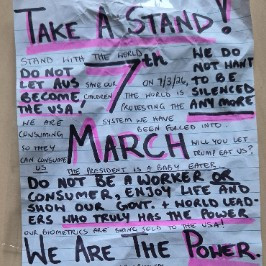 TAKE A STAND!
STAND WITH THE WORLD
DO NOT LET AUS BECOME THE USA!
SAVE OUR CHILDREN
7th
ON 7/3/26, THE WORLD IS PROTESTING THE SYSTEM WE HAVE BEEN FORCED INTO
WE DO NOT WANT TO BE SILENCED ANY MORE
WE ARE CONSUMING SO THEY CAN CONSUME US
MARCH
WILL YOU LET TRUMP EAT US?
THE PRESIDENT IS A BABY EATER
DO NOT BE A WORKER OR
CONSUMER, ENJOY LIFE AND
SHOW OUR GOVT. + WORLD LEAD-
ERS WHO TRULY HAS THE POWER
OUR BIOMETRICS ARE BEING SOLD TO THE USA!
WE ARE THE POWER.